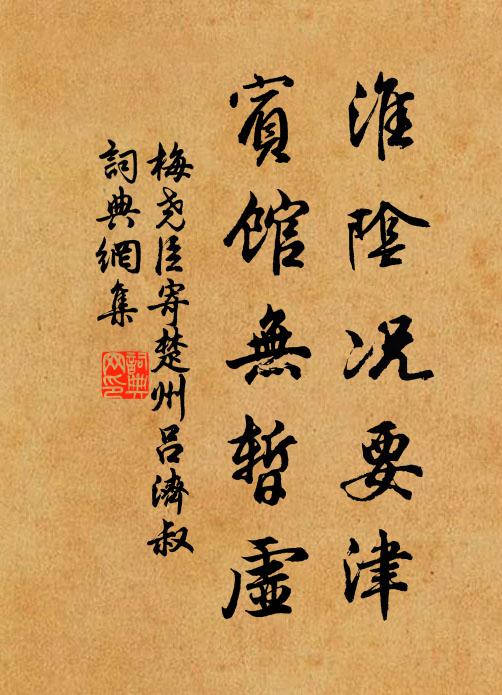 淮陰况要津
賓館無暫虛
梅堯臣寄楚州呂濟叔
詞典網集
詞典网印